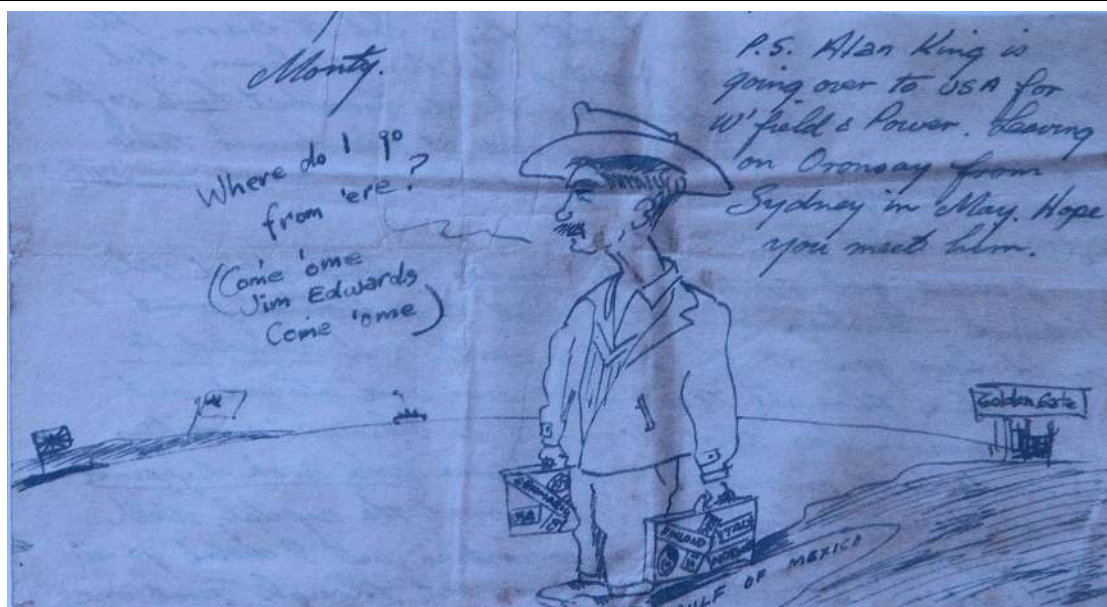 Monty.
P.S. Alan King is
going over to USA for
W'field & Power. Leaving
on Oronsay from
Sydney in May. Hope
you meet him.
Where do I go
from 'ere?
(Come 'ome
Jim Edwards
Come 'ome)
Golden Gate
ENGLAND
ITALY
GULF OF MEXICO